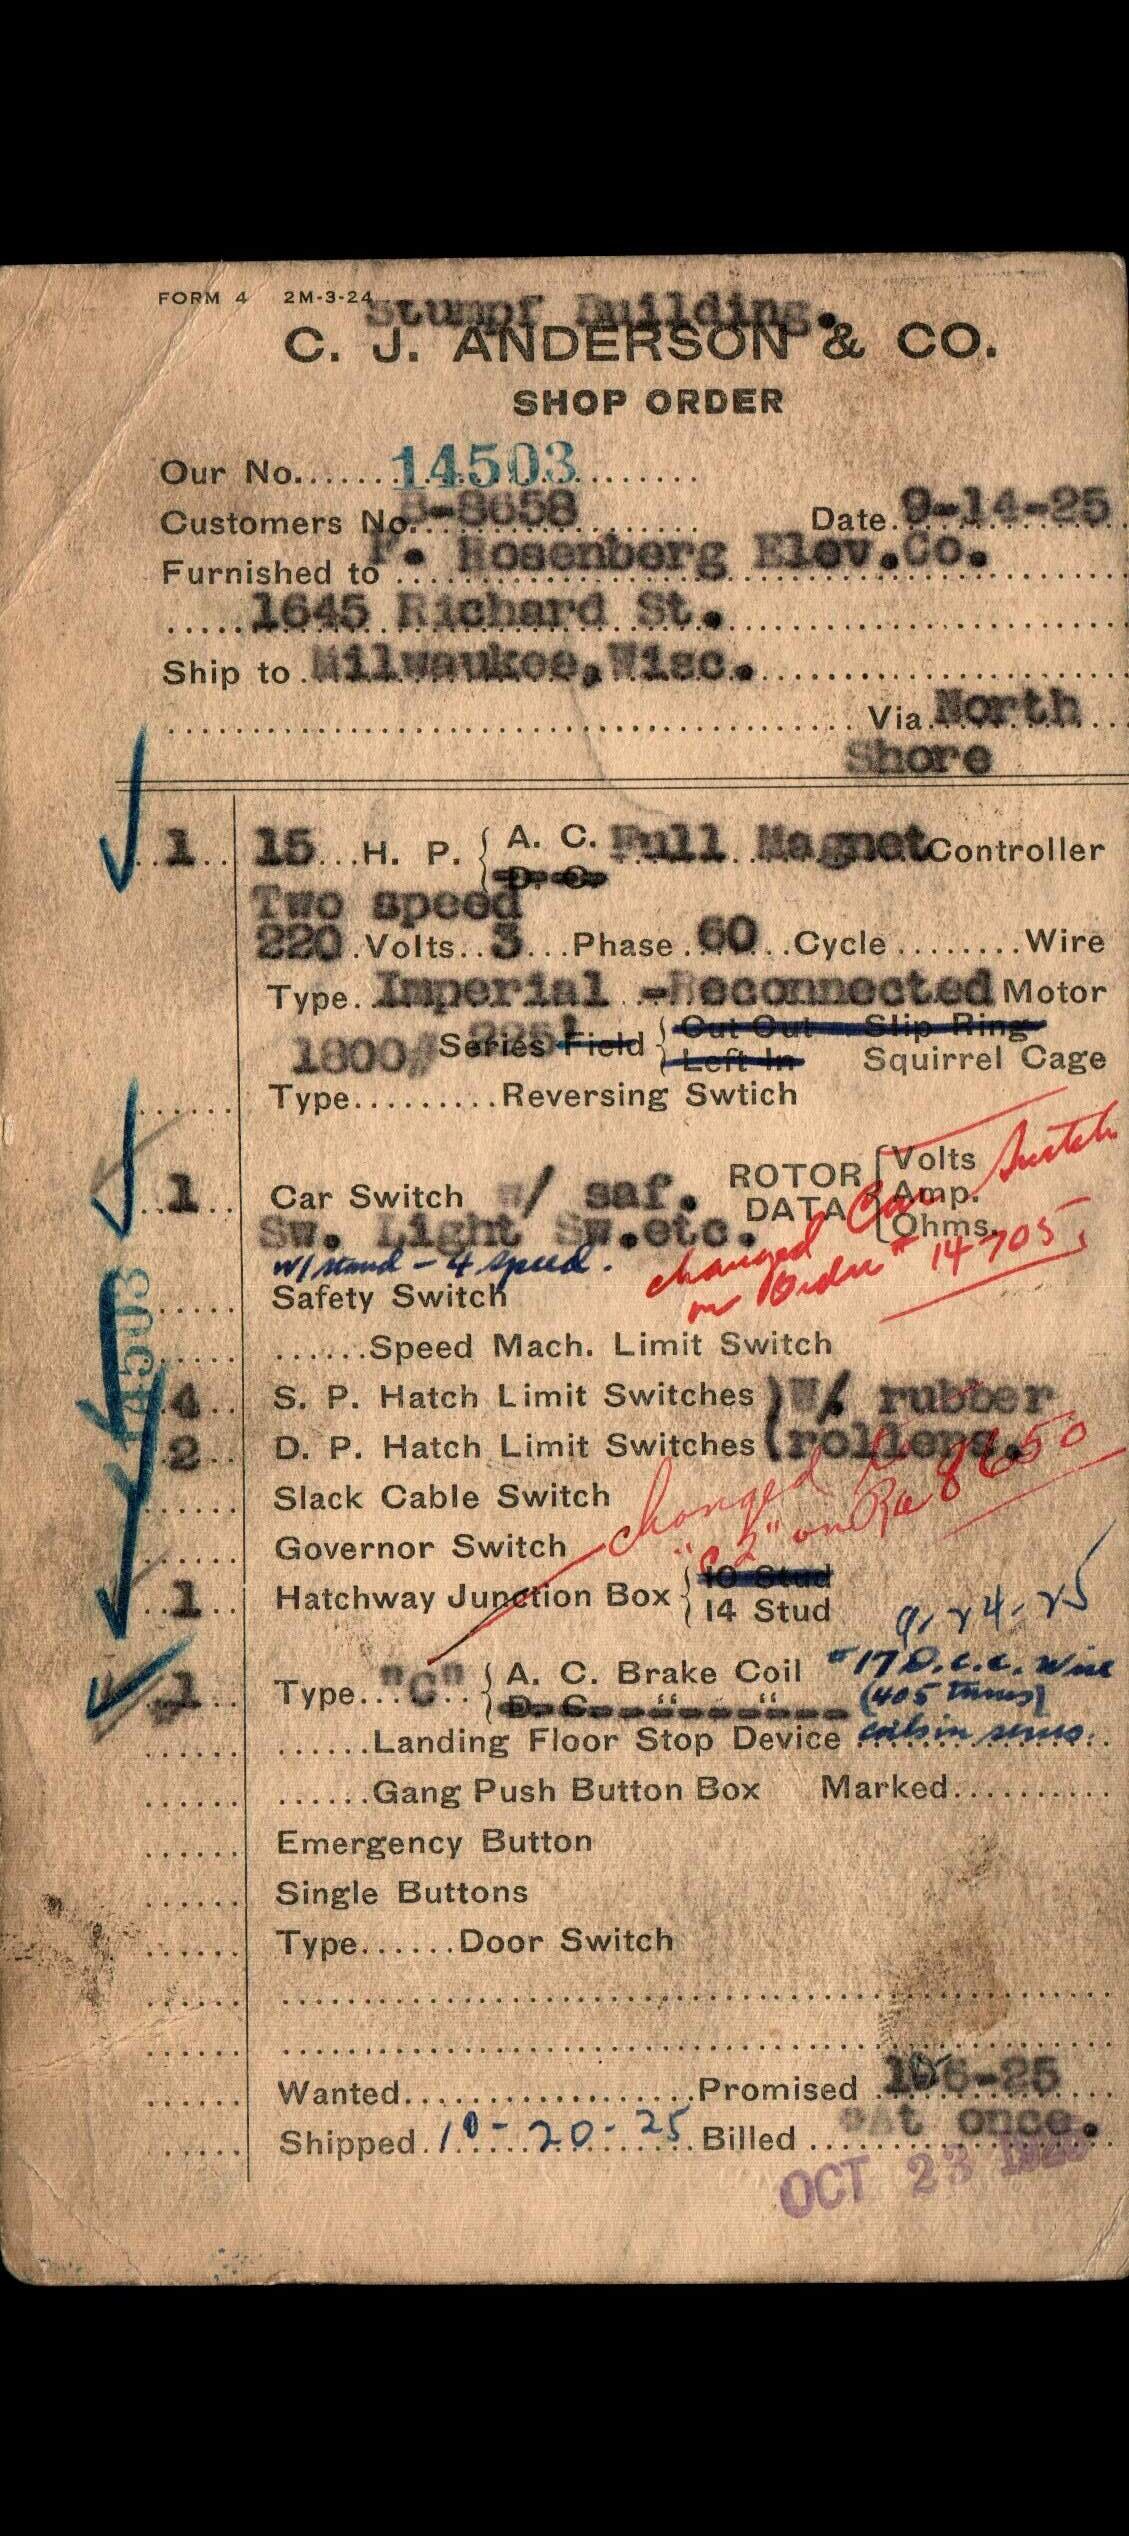 FORM 4 2M-3-24
Stumpf Building.
C. J. ANDERSON & CO.
SHOP ORDER
Our No. 14503
Customers No. -8658 Date. 9-14-25
Furnished to F. Rosenberg Elev.Co.
1645 Richard St.
Ship to Milwaukee,Wisc.
Via North
Shore
1 15 H. P. { A. C. Full Magnet Controller
D. C.
Two speed
220 Volts 3 Phase 60 Cycle ........ Wire
Type. Imperial -Reconnected Motor
1800# Series Field { Cut Out Slip Ring
Left In Squirrel Cage
Type.........Reversing Swtich
1 Car Switch w/ saf. ROTOR DATA { Volts Amp. Ohms.
Sw. Light Sw.etc.
changed Car Switch
on Order # 14705
w/ stand - 4 speed.
Safety Switch
14503
......Speed Mach. Limit Switch
4 S. P. Hatch Limit Switches ) W/ rubber
2 D. P. Hatch Limit Switches ( rollers.
Slack Cable Switch
changed to
"c 2" on Ra 8650
Governor Switch
1 Hatchway Junction Box { 10 Stud
14 Stud
9-24-25
1 Type..."C".. { A. C. Brake Coil #17 D.c.c. Wire
D. C. " " (405 turns)
......Landing Floor Stop Device coils in series.
......Gang Push Button Box Marked..........
Emergency Button
Single Buttons
Type......Door Switch
Wanted..................Promised 10-6-25
Shipped 10-20-25 Billed at once.
OCT 23 1925